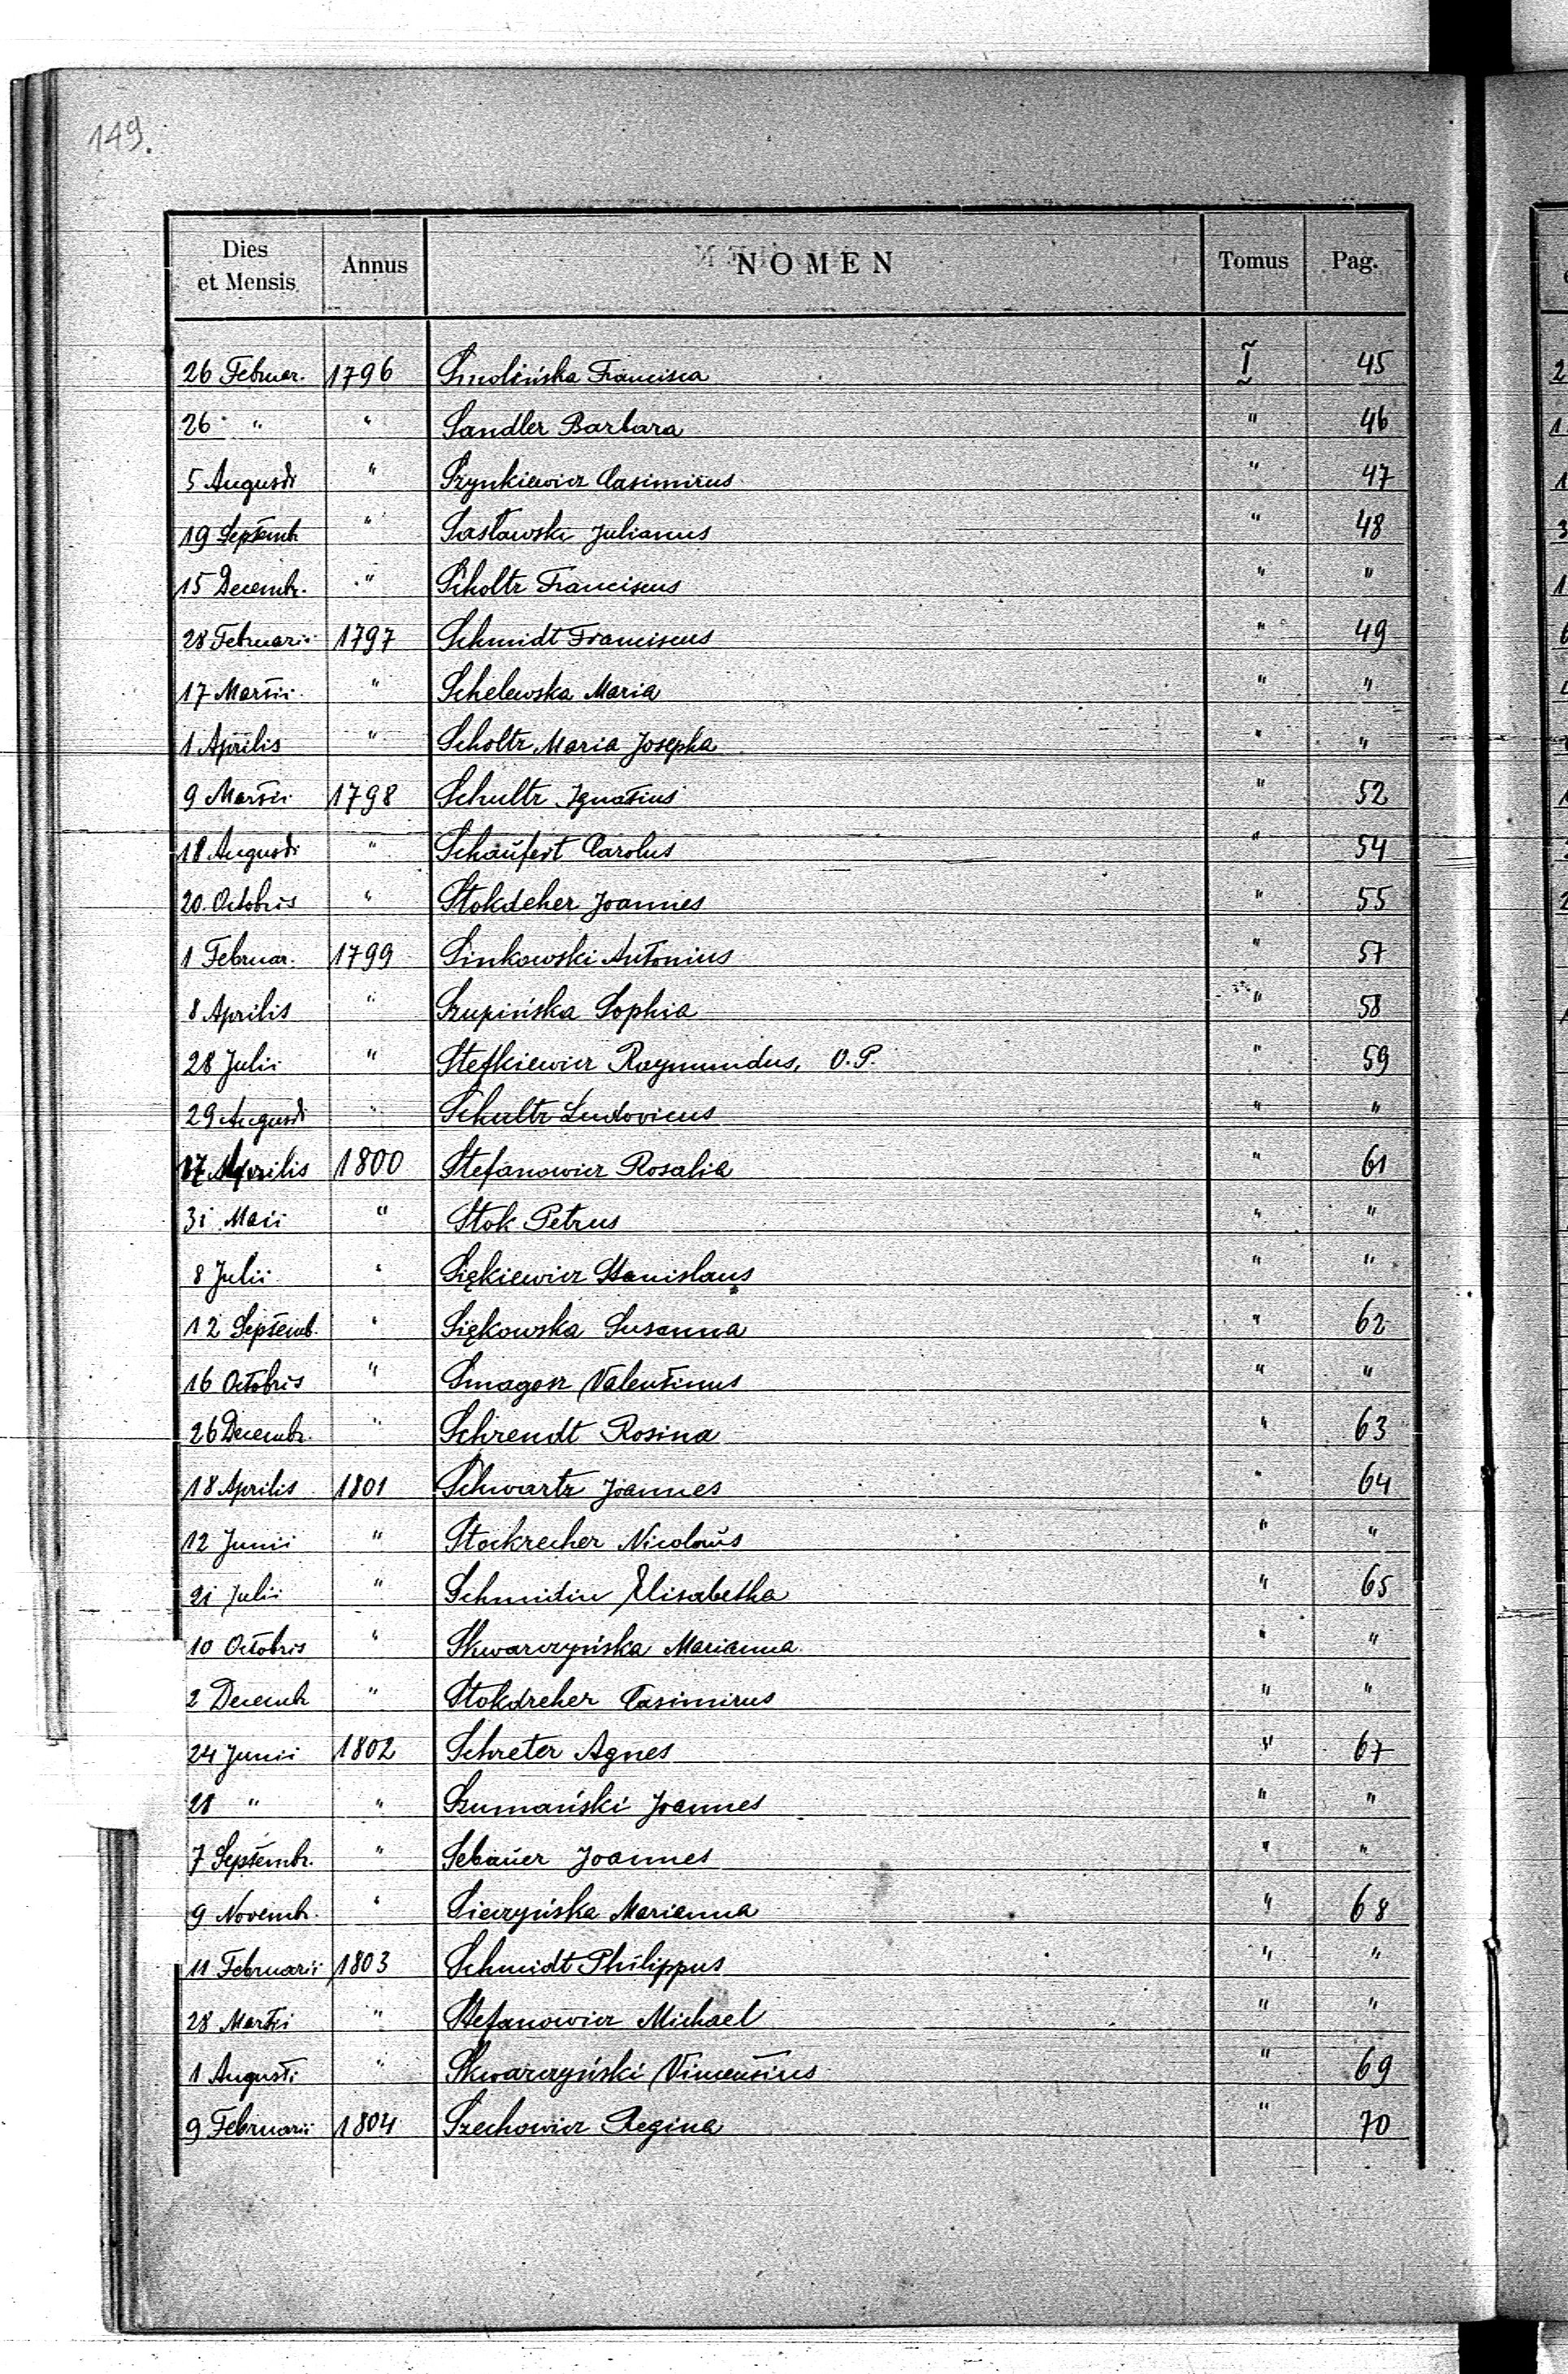 149.
Dies et Mensis Annus NOMEN Tomus Pag.
26 Februar. 1796 Smolińska Francisca I 45
26 " " Sandler Barbara " 46
5 Augusti " Szynkiewicz Casimirus " 47
19 Septemb " Sasławski Julianus " 48
15 Decembr. " Scholtz Franciscus " "
28 Februarii 1797 Schmidt Franciscus " 49
17 Martii " Schelewska Maria " "
1 Aprilis " Scholtz Maria Josepha " "
9 Martii 1798 Schultz Ignatius " 52
18 Augusti " Schaŭfert Carolus " 54
20. Octobris " Stokdeher Joannes " 55
1 Februar. 1799 Sinkowski Antonius " 57
8 Aprilis " Szupińska Sophia " 58
28 Julii " Stefkiewicz Raymundus, O.P. " 59
29 Augusti " Schultz Ludovicus " "
17 Aprilis 1800 Stefanowicz Rosalia " 61
31 Maii " Stok Petrus " "
8 Julii " Siękiewicz Stanislaus " "
12 Septemb. " Siękowska Susanna " 62
16 Octobris " Smagosz Valentinus " "
26 Decembr. " Schrendt Rosina " 63
18 Aprilis 1801 Schwartz Joannes " 64
12 Junii " Stockrecher Nicolaŭs " "
21 Julii " Schmidin Elisabetha " 65
10 Octobris " Skwarczyńska Marianna " "
2 Decemb " Stokdreher Casimirus " "
24 Junii 1802 Schreter Agnes " 67
28 " " Szumański Joannes " "
7 Septembr. " Sebaŭer Joannes " "
9 Novemb. " Sieczyńska Marianna " 68
11 Februarii 1803 Schmidt Philippus " "
28 Martii " Stefanowicz Michael " "
1 Augusti " Skwarczyński Vincentius " 69
9 Februarii 1804 Szechowicz Regina " 70